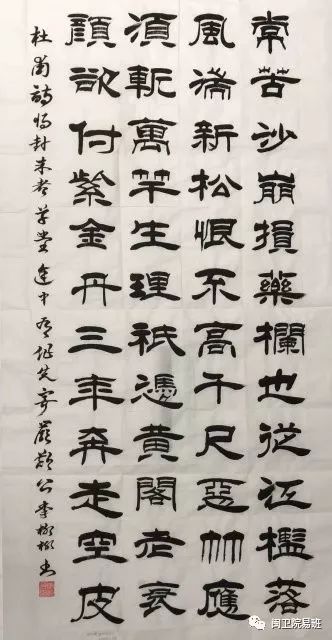 常苦沙崩損藥欄也從江檻落
風湍新松恨不高千尺惡竹應
須斬萬竿生理祇憑黃閣老衰
顏欲付紫金丹三年奔走空皮
杜甫詩將赴成都草堂途中有作先寄嚴鄭公李书
闽卫院易班